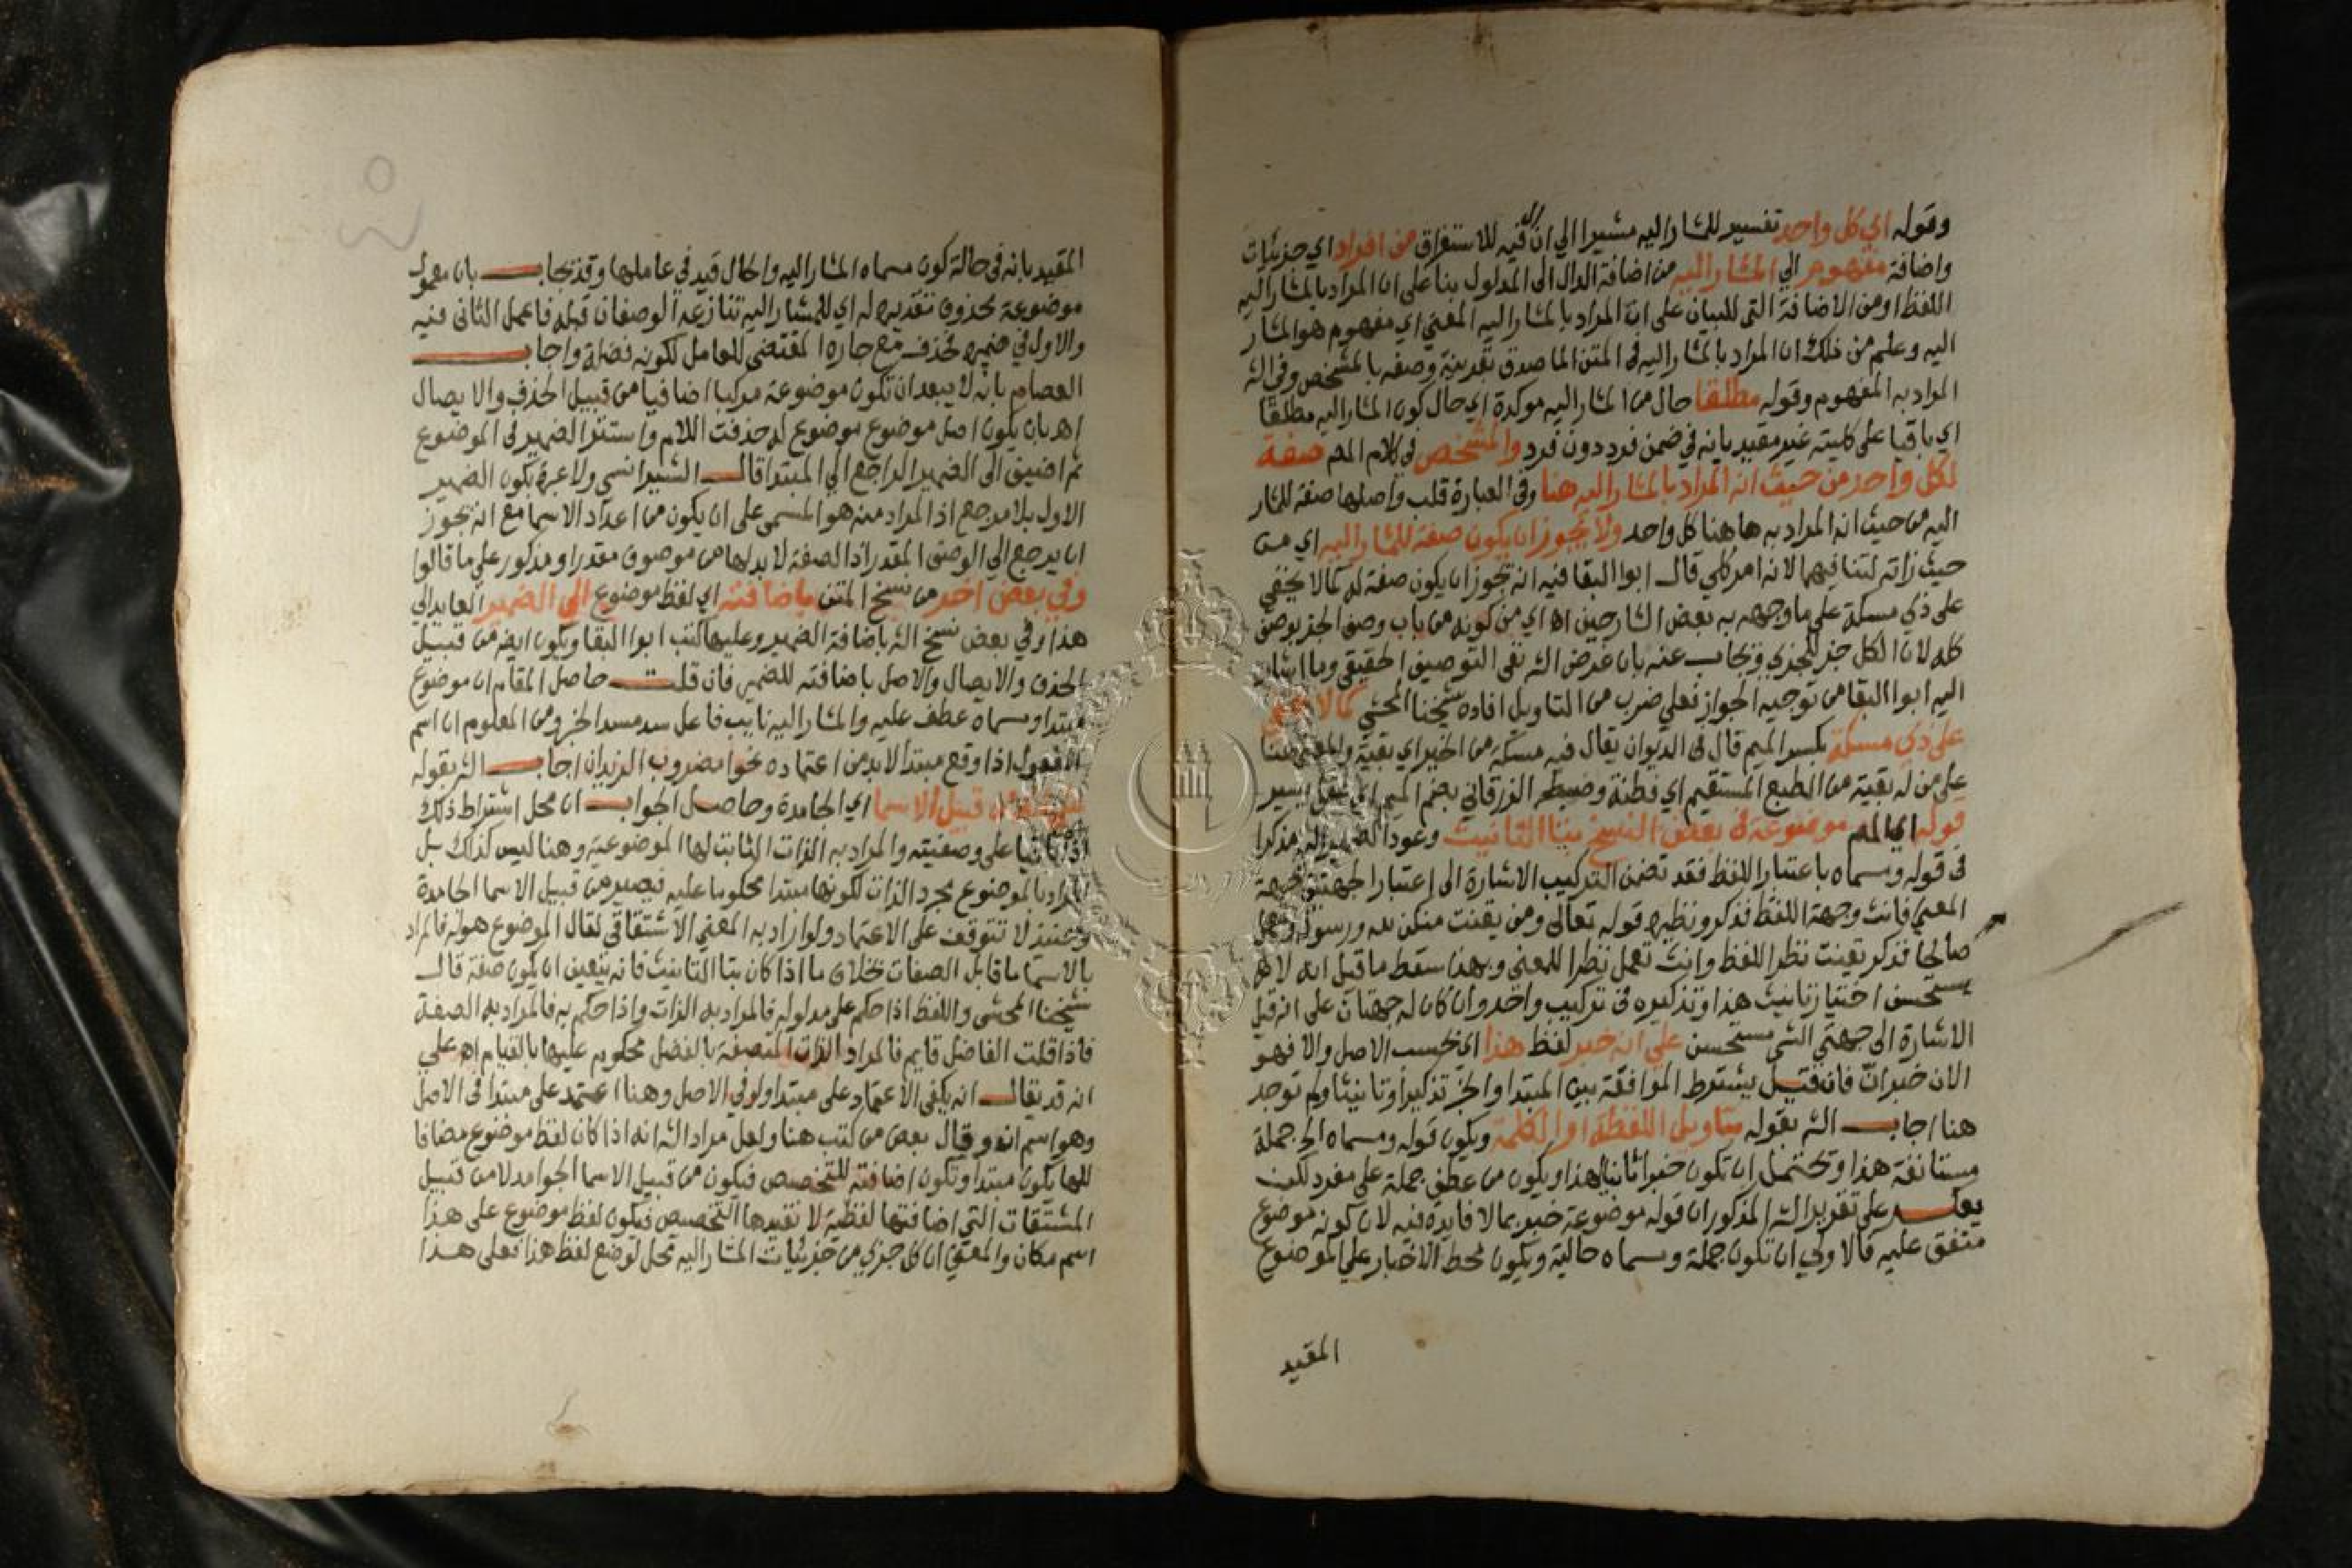 وقوله اي كل واحد تفسير للمشار اليه مشيرا الي ان ال فيه للاستغراق من افراد اي جزئيات
واضافة مفهوم الي المشار اليه من اضافة الدال الى المدلول بنا على ان المراد بالمشار اليه
اللفظ او من الاضافة التى للبيان على ان المراد بالمشار اليه المعني اي مفهوم هو المشار
اليه وعلم من ذلك ان المراد بالمشار اليه فى المتن الماصدق بقرينة وصفه بالمشخص وفى الش
المراد به المفهوم وقوله مطلقا حال من المشار اليه موكدة اي حال كون المشار اليه مطلقا
اي باقيا على كليته غير مقيد بانه في ضمن فرد دون فرد والمشخص فى كلام المص صفة
لكل واحد من حيث انه المراد بالمشار اليه هنا وفى العبارة قلب واصلها صفة للمشار
اليه من حيث انه المراد به هاهنا كل واحد ولا يجوز ان يكون صفة للمشار اليه اي من
حيث ذاته لتنافيهما لانه امر كلي قال ابوا البقا فيه انه يجوز ان يكون صفة له كما لا يخفي
على ذي مسكة على ما وجهه به بعض الشارحين اه اي من كونه من باب وصف الجز بوصف
كله لان الكل جز للجزي ويجاب عنه بان غرض الش نفى التوصيف الحقيقي وما اشار
اليه ابوا البقا من توجيه الجواز فعلي ضرب من التاويل افاده شيخنا المحشي كما لا يخفي
على ذي مسكة بكسر الميم قال فى الديوان يقال فيه مسكة من الخير اي بقية والمعنى هنا
على من له بقية من الطبع المستقيم اي فطنة وضبطه الزرقاني بضم الميم اي عقل يسير
قوله اي المص موضوعة فى بعض النسخ بتا التانيث وعود الضمير اليه مذكرا
فى قوله ومسماه باعتبار اللفظ فقد تضمن التركيب الاشارة الى اعتبار الجهتين جهة
المعني فانث وجهة اللفظ فذكر ونظيره قوله تعالى ومن يقنت منكن لله ورسوله وتعمل
صالحا فذكر يقنت نظرا للفظ وانث تعمل نظرا للمعنى وبهذا سقط ما قيل انه لا
يستحسن اختيار تانيث هذا وتذكيره فى تركيب واحد وان كان له جهتان على انه قيل
الاشارة الى جهتي الشي مستحسن علي انه خبر لفظ هذا اي بحسب الاصل والا فهو
الان خبر ان فان قيل يشترط الموافقة بين المبتدا والخبر تذكيرا وتانيثا ولم توجد
هنا اجاب الش بقوله بتاويل اللفظة او الكلمة ويكون قوله ومسماه الخ جملة
مستانفة هذا ويحتمل ان تكون خبرا ثانيا لهذا ويكون من عطف جملة على مفرد لكن
يعكر على تقرير الش المذكور ان قوله موضوعة خبر بما لا فايدة فيه لان كونه موضوع
متفق عليه فالاولي ان تكون جملة ومسماه حالية ويكون محط الاخبار علي الموضوع
المقيد
المقيد بانه فى حالة كون مسماه المشار اليه والحال قيد فى عاملها وقد يجاب بان معمول
موضوعة محذوف تقديره له اي للمشار اليه تنازعه الوصفان قبله فاعمل الثانى فيه
والاول في ضميره وحذف مع جاره المقتضى للعامل لكونه فضلة واجاب
العصام بانه لا يبعد ان تكون موضوعة مركبا اضافيا من قبيل الحذف والايصال
اه بان يكون اصل موضوع موضوع له حذفت اللام واستتر الضمير فى الموضوع
ثم اضيف الى الضمير الراجع الي المبتدا قال الشيرانسي ولا عبرة بكون الضمير
الاول بلا مرجع اذ المراد منه هو المسمى على ان يكون من اعداد الاسما مع انه يجوز
ان يرجع الي الوصف المقدر اذ الصفة لا بد لها من موصوف مقدر او مذكور على ما قالوا
وفي بعض اخر من نسخ المتن باضافته اي لفظ موضوع الي الضمير العايد الي
هذا وفي بعض نسخ الش باضافة الضمير وعليها كتب ابوا البقا ويكون ايضا من قبيل
الحذف والايصال والاصل باضافته للضمير فان قلت حاصل المقام ان موضوع
مبتدا ومسماه عطف عليه والمشار اليه نايب فاعل سد مسد الخبر ومن المعلوم ان اسم
المفعول اذا وقع مبتدا لا بد من اعتماده نحو ا مضروب الزيدان اجاب الش بقوله
من قبيل الاسما اي الجامدة وحاصل الجواب ان محل اشتراط ذلك
اذا باقيا على وصفيته والمراد به الذات الثابت لها الموضوعية وهنا ليس كذلك بل
المراد بالموضوع مجرد الذات لكونها مبتدا محكوما عليه فيصير من قبيل الاسما الجامدة
وحينئذ لا تتوقف على الاعتماد ولو اراد به المعنى الاشتقاقي لقال الموضوع هو له فالمراد
بالاسما ما قابل الصفات بخلاف ما اذا كان بتا التانيث فانه يتعين ان يكون صفة قال
شيخنا المحشى واللفظ اذا حكم على مدلوله فالمراد به الذات واذا حكم به فالمراد به الصفة
فاذا قلت الفاضل قايم فالمراد الذات المتصفة بالفضل محكوم عليها بالقيام اه علي
انه قد يقال انه يكفى الاعتماد على مبتدا ولو في الاصل وهنا اعتمد على مبتدا فى الاصل
وهو اسم ان وقال بعض من كتب هنا ولعل مراد الش انه اذا كان لفظ موضوع مضافا
للها يكون مبتدا وتكون اضافته للتخصيص فيكون من قبيل الاسما الجوامد لا من قبيل
المشتقات التي اضافتها لفظية لا تفيدها التخصيص فيكون لفظ موضوع على هذا
اسم مكان والمعنى ان كل جزي من جزئيات المشار اليه محل لوضع لفظ هذا فعلى هذا